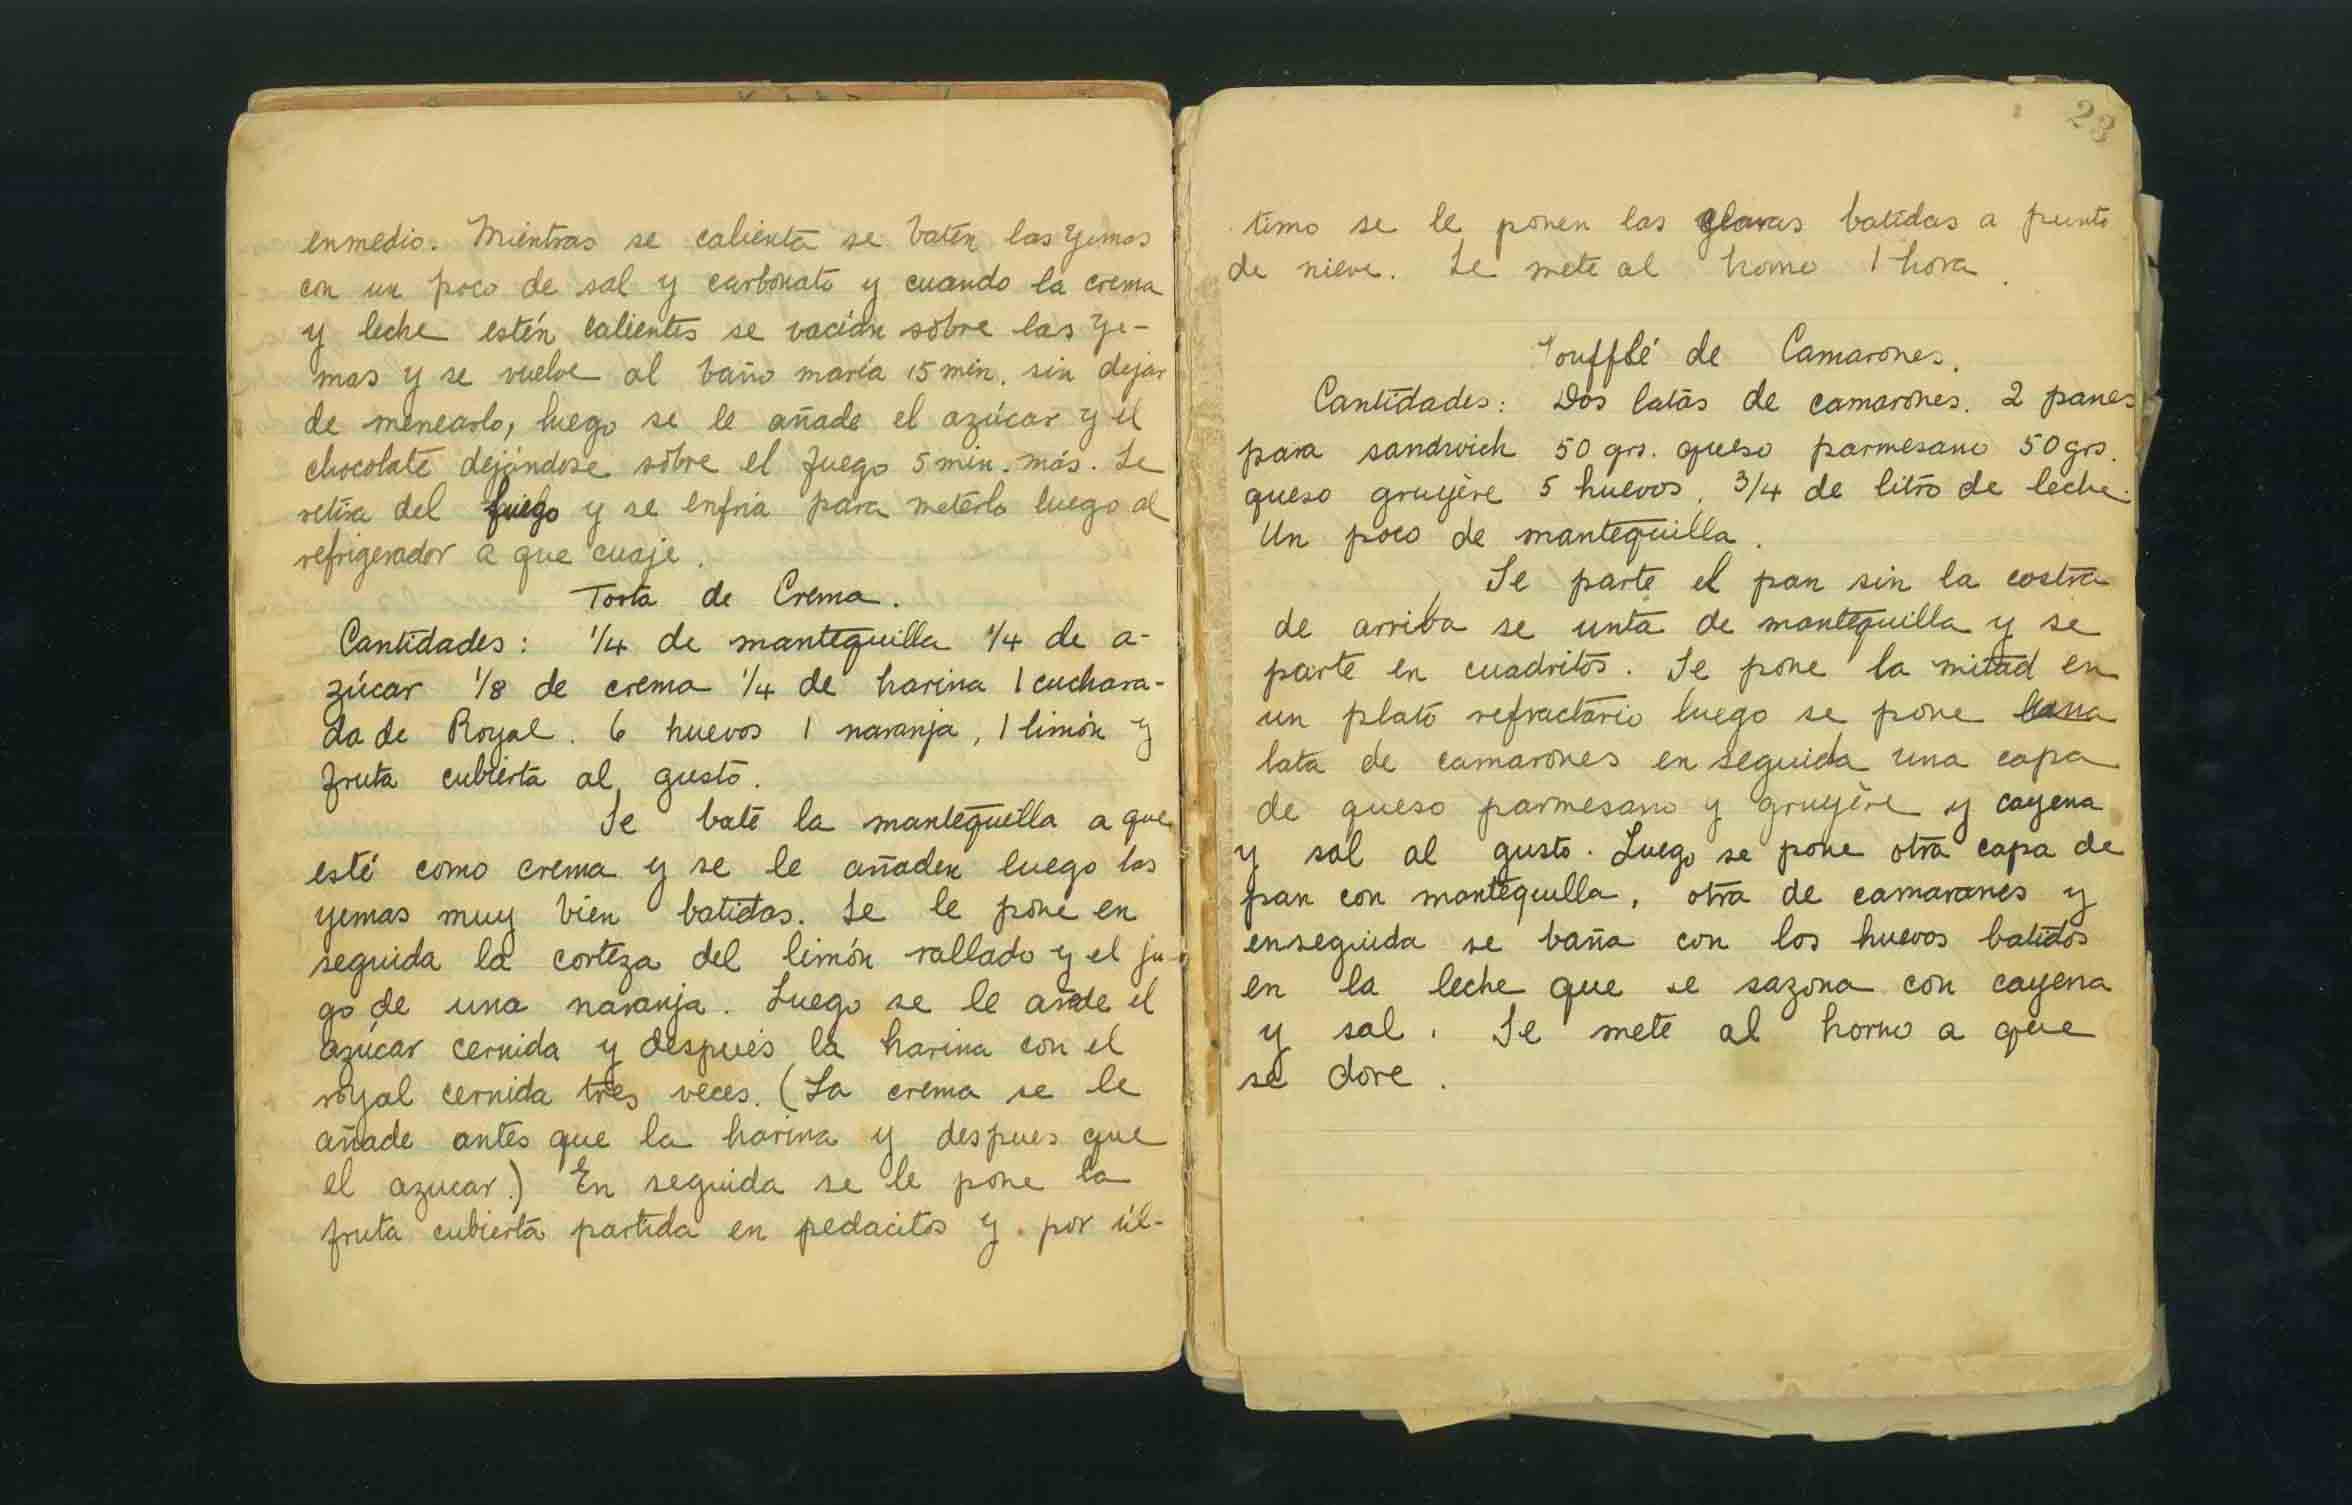 enmedio. Mientras se calienta se baten las yemas
con un poco de sal y carbonato y cuando la crema
y leche estén calientes se vacian sobre las ye-
mas y se vuelve al baño maría 15 min. sin dejar
de menearlo, luego se le añade el azúcar y el
chocolate dejándose sobre el fuego 5 min. más. Se
retira del fuego y se enfría para meterlo luego al
refrigerador a que cuaje.
Torta de Crema.
Cantidades: 1/4 de mantequilla 1/4 de a-
zúcar 1/8 de crema 1/4 de harina 1 cuchara-
da de Royal. 6 huevos 1 naranja, 1 limón y
fruta cubierta al gusto.
Se bate la mantequilla a que
esté como crema y se le añaden luego las
yemas muy bien batidas. Se le pone en
seguida la corteza del limón rallado y el ju-
go de una naranja. Luego se le añade el
azúcar cernida y después la harina con el
royal cernida tres veces. (La crema se le
añade antes que la harina y despues que
el azucar.) En seguida se le pone la
fruta cubierta partida en pedacitos y por úl-
23
timo se le ponen las claras batidas a punto
de nieve. Se mete al horno 1 hora.
Soufflé de Camarones.
Cantidades: Dos latas de camarones. 2 panes
para sandwich 50 grs. queso parmesano 50 grs.
queso gruyère 5 huevos, 3/4 de litro de leche.
Un poco de mantequilla.
Se parte el pan sin la costra
de arriba se unta de mantequilla y se
parte en cuadritos. Se pone la mitad en
un plato refractario luego se pone una
lata de camarones en seguida una capa
de queso parmesano y gruyère y cayena
y sal al gusto. Luego se pone otra capa de
pan con mantequilla, otra de camarones y
enseguida se baña con los huevos batidos
en la leche que se sazona con cayena
y sal. Se mete al horno a que
se dore.